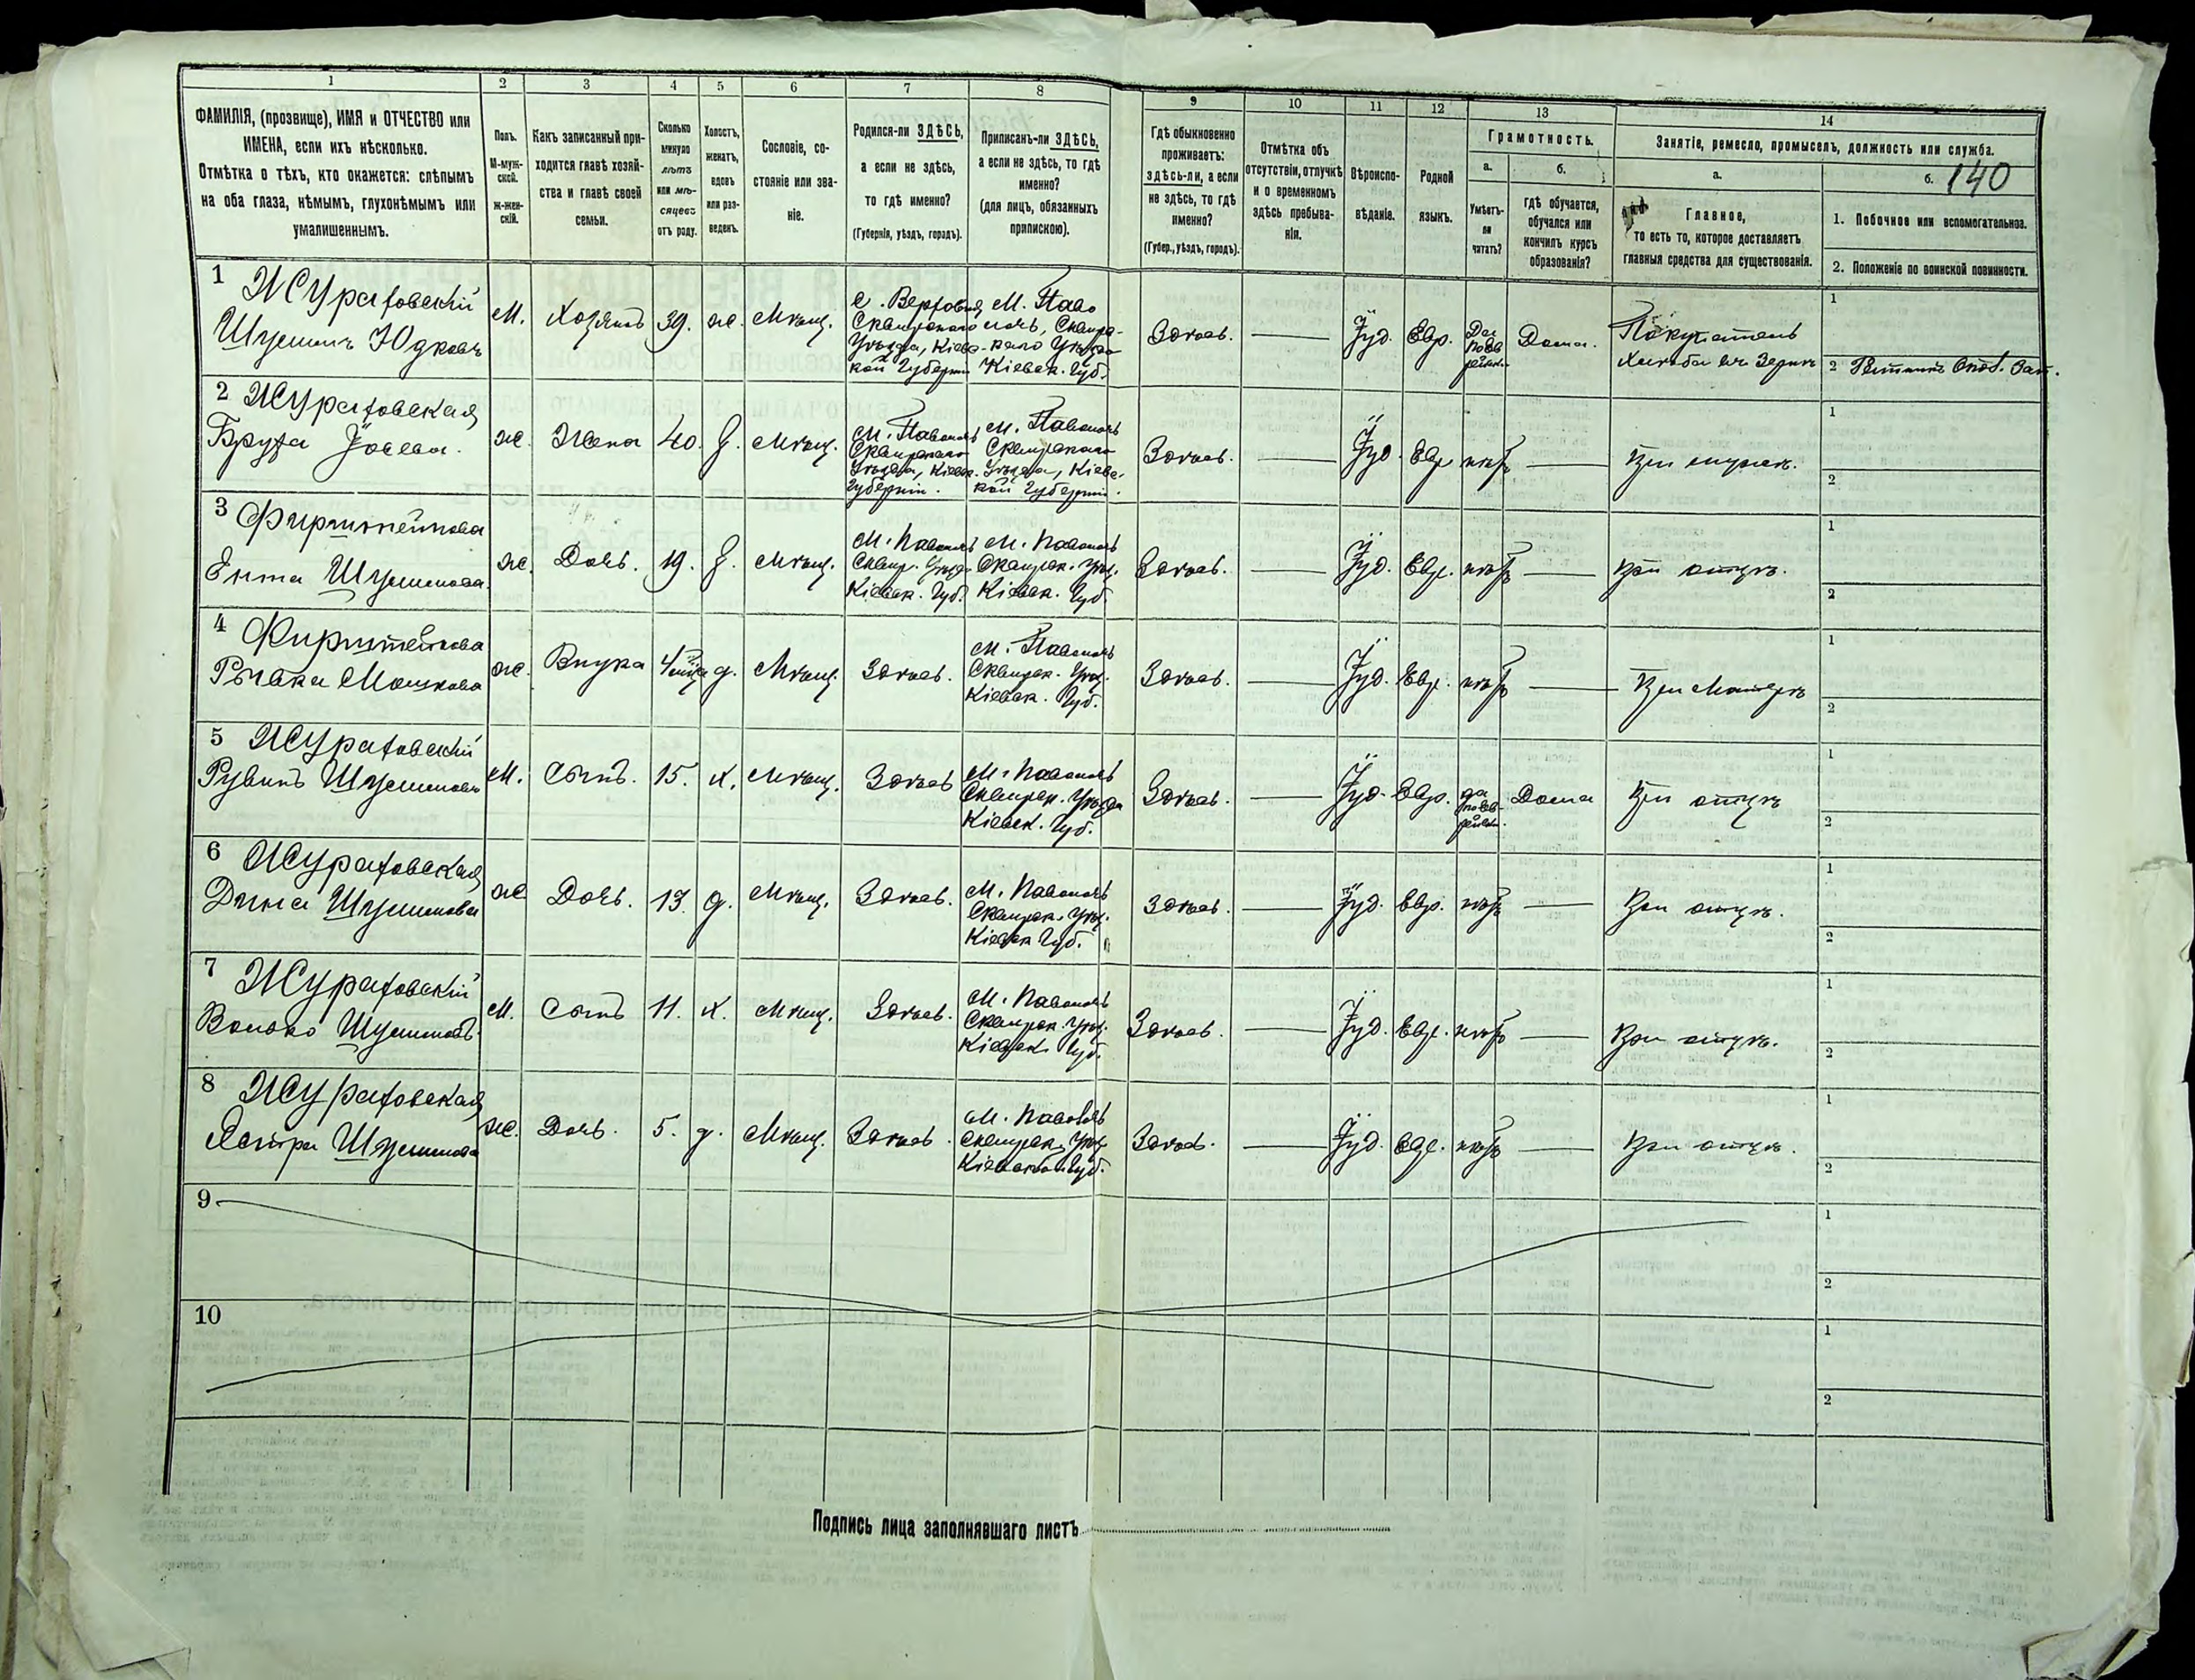 1 2 3 4 5 6 7 8 9 10 11 12 13 14
ФАМИЛІЯ, (прозвище), ИМЯ и ОТЧЕСТВО или
ИМЕНА, если ихъ нѣсколько.
Отмѣтка о тѣхъ, кто окажется: слѣпымъ
на оба глаза, нѣмымъ, глухонѣмымъ или
умалишеннымъ.
Полъ.
М-муж-
ской.
Ж-жен-
скій.
Какъ записанный при-
ходится главѣ хозяй-
ства и главѣ своей
семьи.
Сколько
минуло
лѣтъ
или мѣ-
сяцевъ
отъ роду.
Холостъ,
женатъ,
вдовъ
или раз-
веденъ.
Сословіе, со-
стояніе или зва-
ніе.
Родился-ли ЗДѢСЬ,
а если не здѣсь,
то гдѣ именно?
(Губернія, уѣздъ, городъ).
Приписанъ-ли ЗДѢСЬ,
а если не здѣсь, то гдѣ
именно?
(для лицъ, обязанныхъ
припискою).
Гдѣ обыкновенно
проживаетъ:
здѣсь-ли, а если
не здѣсь, то гдѣ
именно?
(Губер., уѣздъ, городъ).
Отмѣтка объ
отсутствіи, отлучкѣ
и о временномъ
здѣсь пребыва-
ніи.
Вѣроиспо-
вѣданіе.
Родной
языкъ.
Грамотность.
а.
Умѣетъ-
ли
читать?
б.
гдѣ обучается,
обучался или
кончилъ курсъ
образованія?
Занятіе, ремесло, промыселъ, должность или служба.
а.
Главное,
то есть то, которое доставляетъ
главныя средства для существованія.
б. 140
1. Побочное или вспомогательное.
2. Положеніе по воинской повинности.
1 Журатовскій
Шулимъ Юдковъ
М. Хозяинъ 39. ж. Мѣщ.
Сквирскаго
Уѣзда, Кіевс-
кой Губерніи
Кіевск. Губ.
Здѣсь. Іуд. Евр. Да Дома.
Покупатель
Хлѣба въ Зернѣ
1
2
2 Журатовская
Ж. Жена 40. З. Мѣщ.
М. Паволочь
Сквирскаго
Уѣзда, Кіевск.
Губерніи.
М. Паволочь
Сквирскаго
Уѣзда, Кіевс-
кой Губерніи.
Здѣсь. Іуд. Евр. нѣтъ При мужѣ.
1
2
3 Фирштейнова
Ента Шулимова.
ж. Дочь. 19. З. Мѣщ.
М. Паволочь
Кіевск. Губ.
М. Паволочь
Сквирск. Уѣз.
Кіевск. Губ.
Здѣсь. Іуд. Евр. нѣтъ При отцѣ.
1
2
4 Фирштейнова
Мошкова
ж. Внука д. Мѣщ. Здѣсь.
М. Паволочь
Сквирск. Уѣз.
Кіевск. Губ.
Здѣсь. Іуд. Евр. нѣтъ При Матерѣ
1
2
5 Журатовскій
Рувинъ Шулимовъ
М. Сынъ. 15. х. Мѣщ. Здѣсь
М. Паволочь
Сквирск. Уѣзда
Кіевск. Губ.
Здѣсь. Іуд. Евр. да Дома При отцѣ
1
2
6 Журатовская
Дина Шулимова
ж. Дочь. 13. д. Мѣщ. Здѣсь.
М. Паволочь
Сквирск. Уѣз.
Кіевск Губ.
Здѣсь. Іуд. Евр. нѣтъ При отцѣ.
1
2
7 Журатовскій
Волько Шулимовъ.
М. Сынъ 11. х. Мѣщ. Здѣсь.
М. Паволочь
Сквирск. Уѣз.
Кіевск. Губ.
Здѣсь. Іуд. Евр. нѣтъ При отцѣ.
1
2
8 Журатовская
Шулимова
ж. Дочь. 5. д. Мѣщ. Здѣсь.
М. Паволочь
Сквирск. Уѣз.
Здѣсь. Іуд. Евр. нѣтъ При отцѣ.
1
2
9
1
2
10
1
2
Подпись лица заполнявшаго листъ